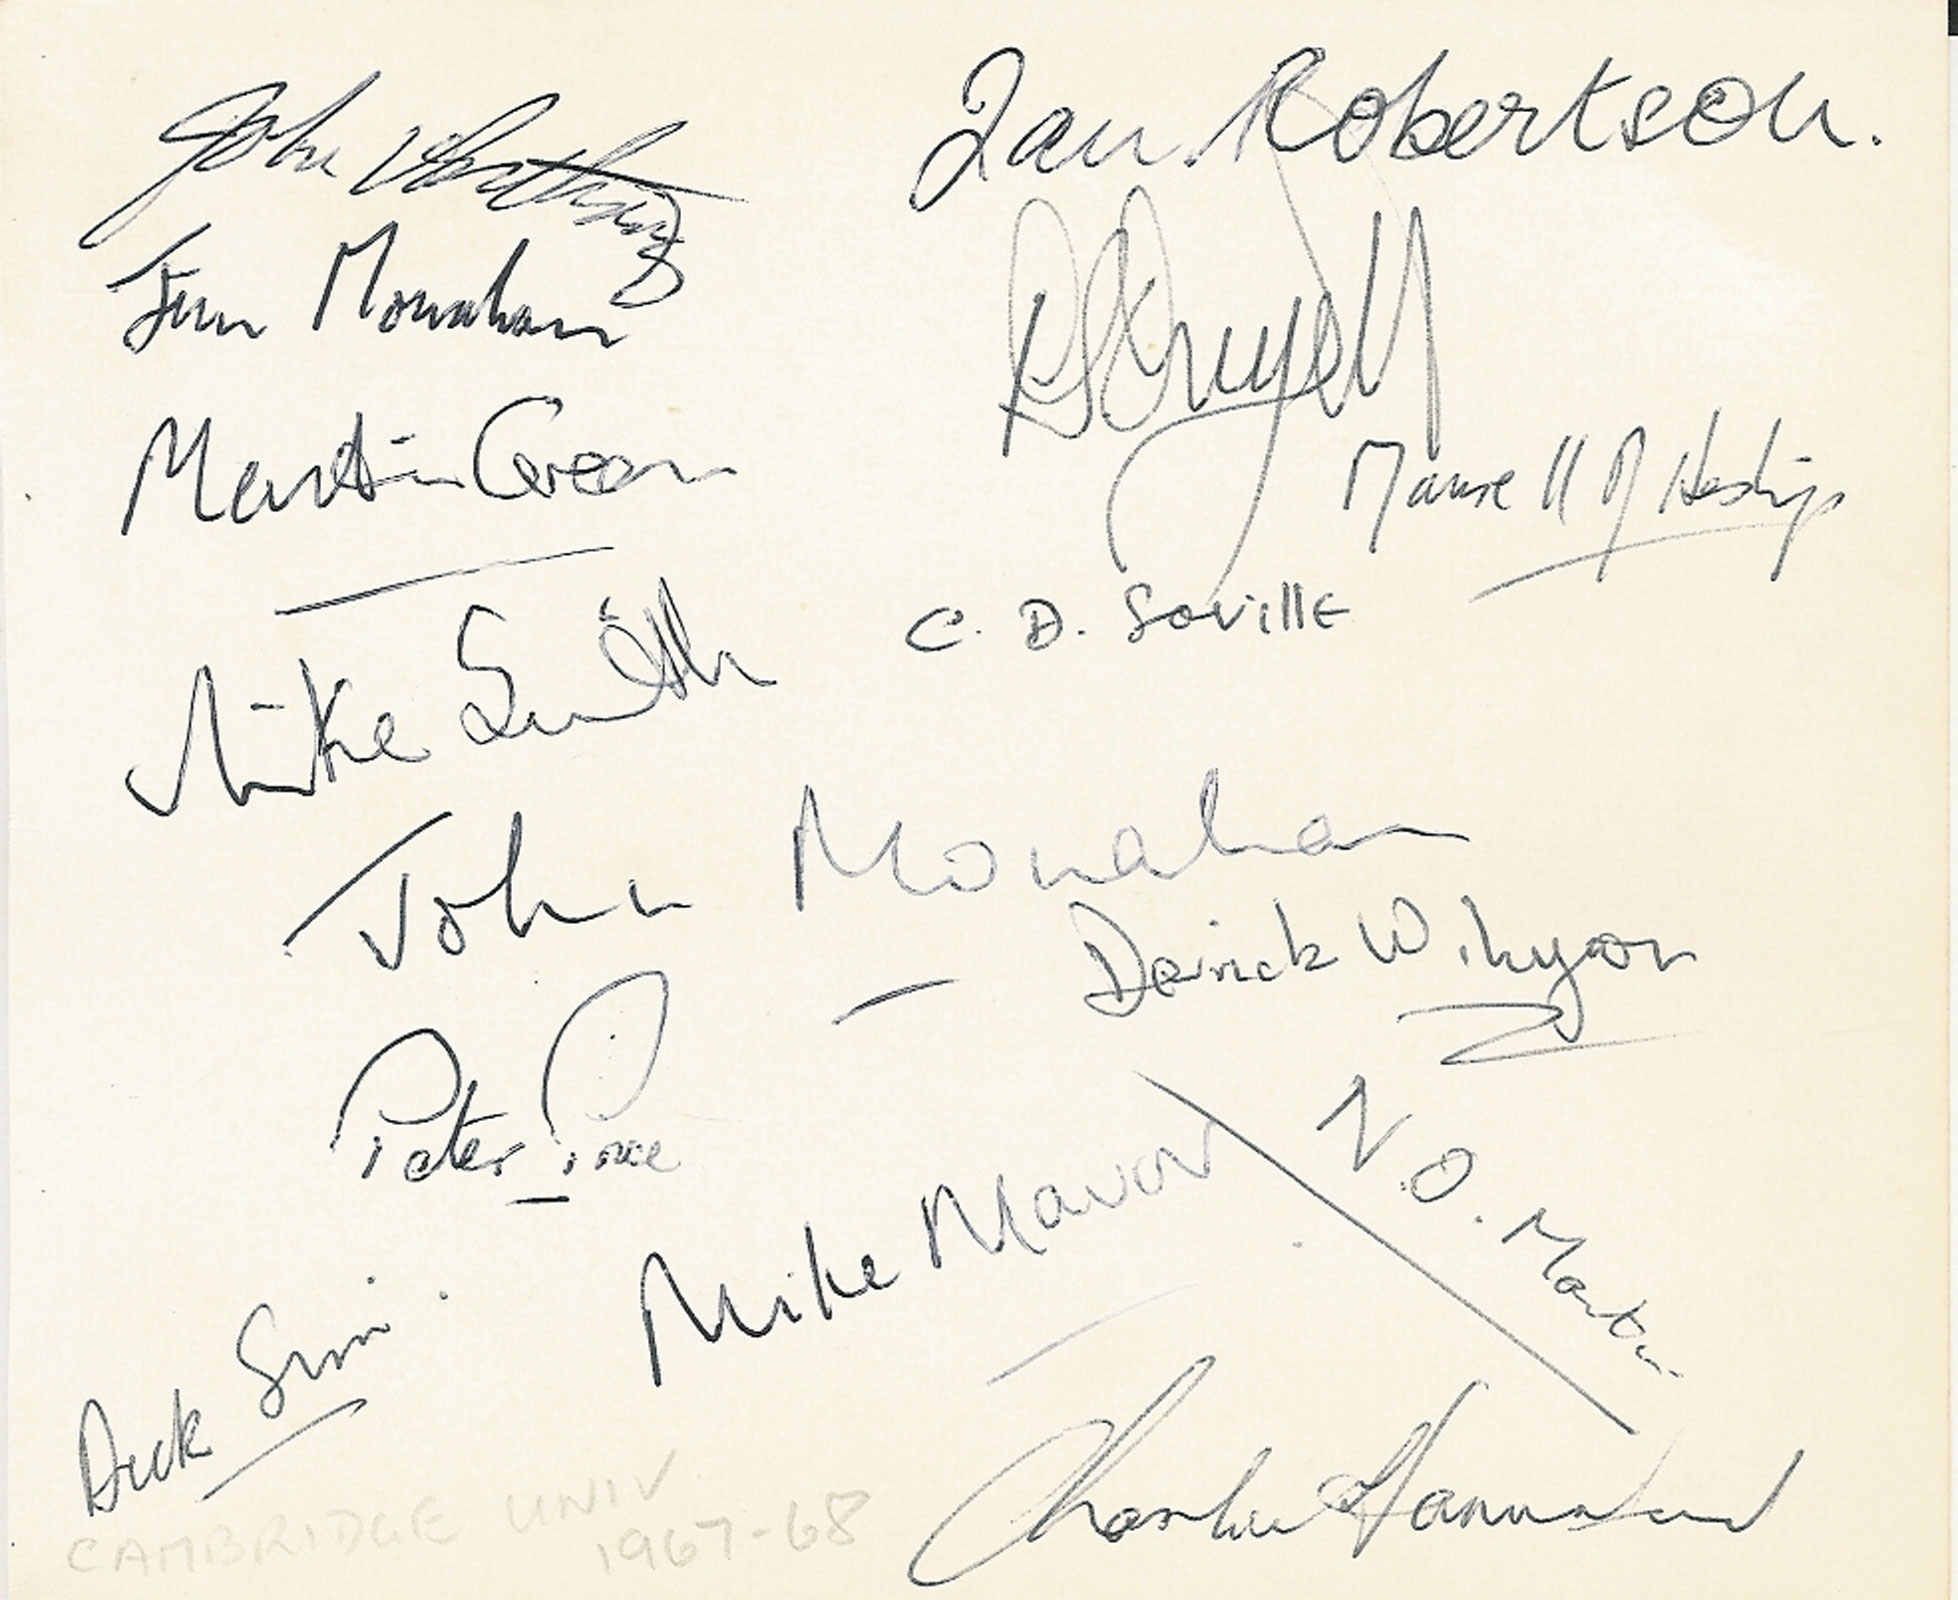 John
Ian Robertson.
Jim Monahan
Martin Green
C. D. Saville
Mike Smith
John Monahan
Derrick
Peter
N. O. Martin
Mike Mavor
Dick
Charlie Hannaford
CAMBRIDGE UNIV
1967-68